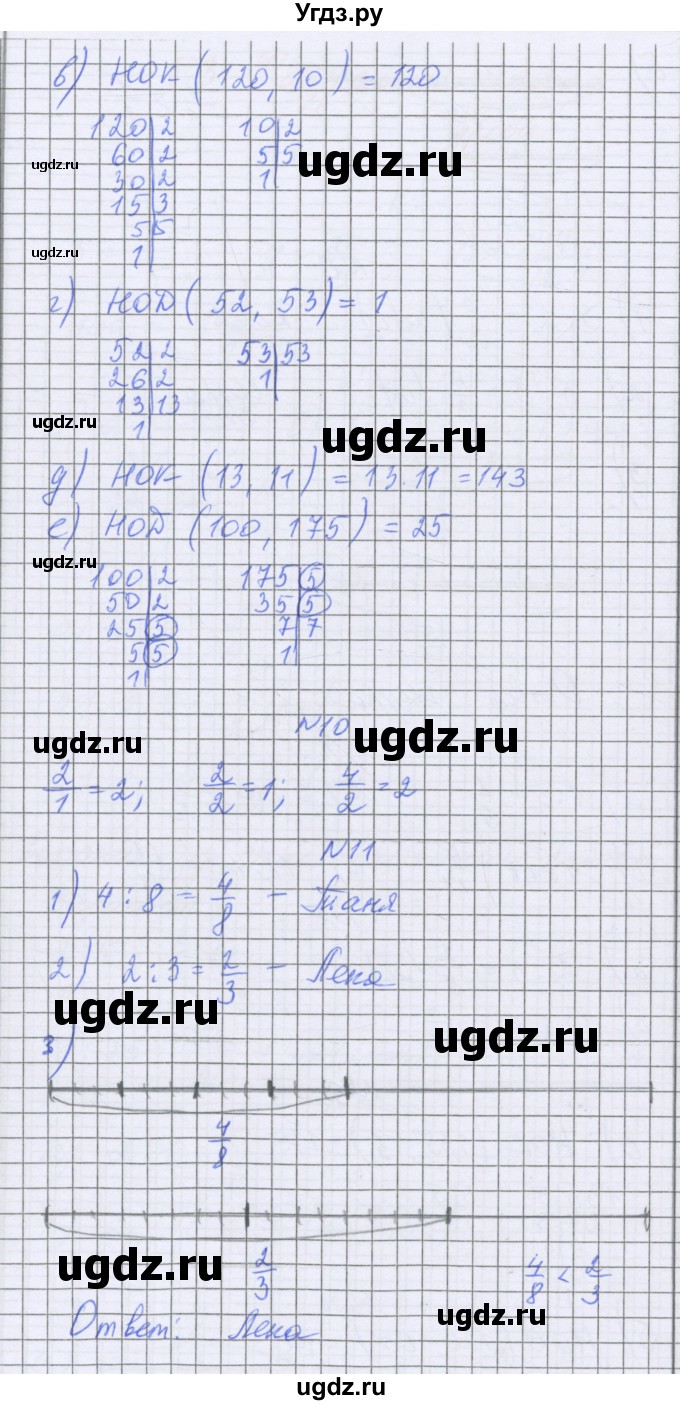 Угдз.ру
в) НОК (120, 10) = 120
120 | 2    10 | 2
60 | 2    5 | 5
30 | 2    1
15 | 3
5 | 5
1
г) НОД (52, 53) = 1
52 | 2    53 | 53
26 | 2    1
13 | 13
1
д) НОК (13, 11) = 13·11 = 143
е) НОД (100, 175) = 25
100 | 2    175 | 5
50 | 2    35 | 5
25 | 5    7 | 7
5 | 5    1
1
N10
2/1 = 2;    2/2 = 1;    4/2 = 2
N11
1) 4 : 8 = 4/8 - Таня
2) 2 : 3 = 2/3 - Лена
3)
4/8
2/3    4/8 < 2/3
Ответ: Лена
ugdz.ru
ugdz.ru
ugdz.ru
ugdz.ru
ugdz.ru
ugdz.ru
ugdz.ru
ugdz.ru
ugdz.ru
ugdz.ru
ugdz.ru
ugdz.ru
ugdz.ru